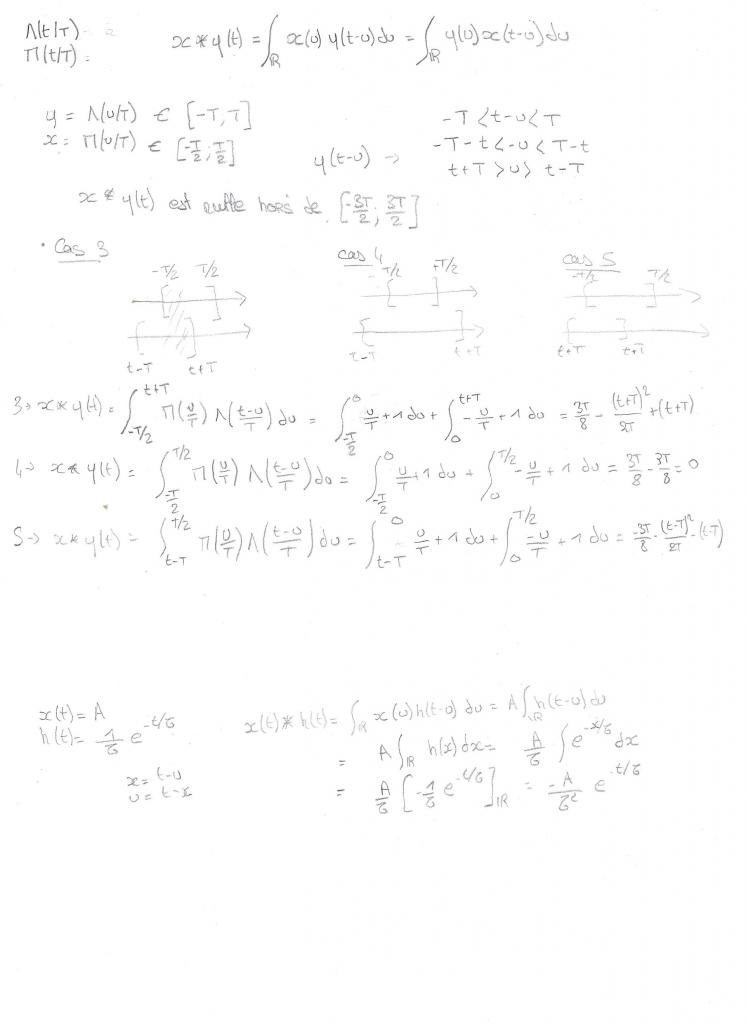 Λ(t/T)
Π(t/T) :
x * y(t) = ∫_ℝ x(u) y(t-u) du = ∫_ℝ y(u) x(t-u) du
y = Λ(u/T) ∈ [-T, T]
x = Π(u/T) ∈ [-T/2 ; T/2]
y(t-u) →
-T < t-u < T
-T-t < -u < T-t
t+T > u > t-T
x * y(t) est nulle hors de [-3T/2 ; 3T/2]
• Cas 3
-T/2 T/2
t-T t+T
cas 4
-T/2 +T/2
t-T t+T
cas 5
-T/2 T/2
t+T t+T
3→ x * y(t) = ∫_{-T/2}^{t+T} Π(u/T) Λ((t-u)/T) du = ∫_{-T/2}^{0} u/T + 1 du + ∫_{0}^{t+T} -u/T + 1 du = 3T/8 - (t+T)²/2T + (t+T)
4→ x * y(t) = ∫_{-T/2}^{T/2} Π(u/T) Λ((t-u)/T) du = ∫_{-T/2}^{0} u/T + 1 du + ∫_{0}^{T/2} -u/T + 1 du = 3T/8 - 3T/8 = 0
5→ x * y(t) = ∫_{t-T}^{T/2} Π(u/T) Λ((t-u)/T) du = ∫_{t-T}^{0} u/T + 1 du + ∫_{0}^{T/2} -u/T + 1 du = -3T/8 - (t-T)²/2T - (t-T)
x(t) = A
h(t) = 1/τ e^{-t/τ}
x = t-u
u = t-x
x(t) * h(t) = ∫_ℝ x(u) h(t-u) du = A ∫_ℝ h(t-u) du
= A ∫_ℝ h(x) dx = A/τ ∫ e^{-x/τ} dx
= A/τ [-1/τ e^{-t/τ}]_ℝ = -A/τ² e^{-t/τ}